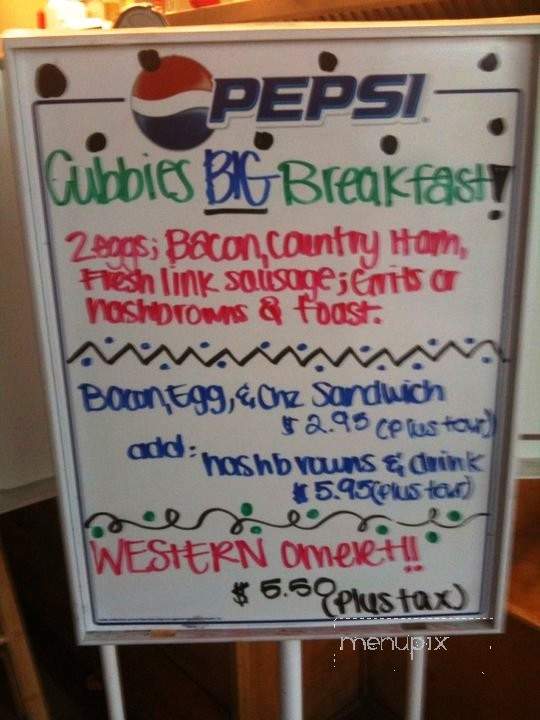 PEPSI
Cubbies BIG Breakfast!
2 eggs; Bacon, Country Ham,
Fresh link sausage; Grits or
hashbrowns & Toast.
Bacon, Egg, & Chz Sandwich
$ 2.95 (plus tax)
add: hashbrowns & drink
$ 5.95 (plus tax)
WESTERN omelet!!
$ 5.50 (plus tax)
menupix